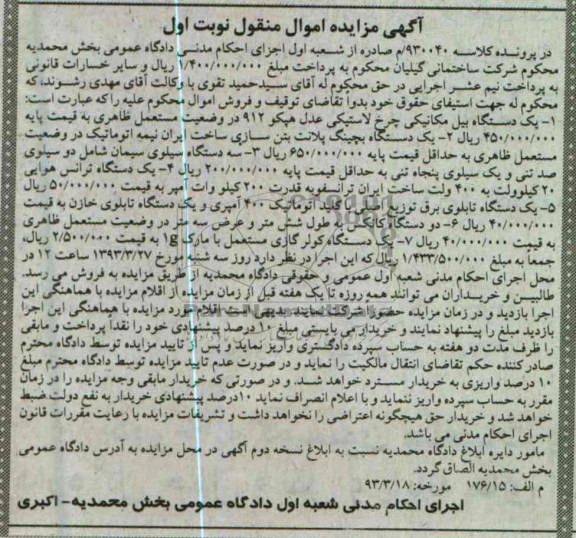 آگهی مزایده اموال منقول نوبت اول
در پرونده کلاسه ۹۳۰۰۴۰/م صادره از شعبه اول اجرای احکام مدنی دادگاه عمومی بخش محمدیه
محکوم شرکت ساختمانی گیلیان محکوم به پرداخت مبلغ ۱/۴۰۰/۰۰۰/۰۰۰ ریال و سایر خسارات قانونی
به پرداخت نیم عشر اجرایی در حق محکوم له آقای سیدحمید تقوی با وکالت آقای مهدی رشوند، که
محکوم له جهت استیفای حقوق خود بدوا تقاضای توقیف و فروش اموال محکوم علیه را که عبارت است:
۱- یک دستگاه بیل مکانیکی چرخ لاستیکی عدل هپکو ۹۱۲ در وضعیت مستعمل ظاهری به قیمت پایه
۴۵۰/۰۰۰/۰۰۰ ریال ۲- یک دستگاه بچینگ پلانت بتن سازی ساخت ایران نیمه اتوماتیک در وضعیت
مستعمل ظاهری به حداقل قیمت پایه ۶۵۰/۰۰۰/۰۰۰ ریال ۳- سه دستگاه سیلوی سیمان شامل دو سیلوی
صد تنی و یک سیلوی پنجاه تنی به حداقل قیمت پایه ۲۰۰/۰۰۰/۰۰۰ ریال ۴- یک دستگاه ترانس هوایی
۲۰ کیلوولت به ۴۰۰ ولت ساخت ایران ترانسفو به قدرت ۲۰۰ کیلو وات آمپر به قیمت ۵۰/۰۰۰/۰۰۰ ریال
۵- یک دستگاه تابلوی برق توزیع اصلی فاقد اتوماتیک ۴۰۰ آمپری و یک دستگاه تابلوی خازن به قیمت
۴۰/۰۰۰/۰۰۰ ریال ۶- دو دستگاه کانکس به طول شش متر و عرض سه متر در وضعیت مستعمل ظاهری
به قیمت ۴۰/۰۰۰/۰۰۰ ریال ۷- یک دستگاه کولر گازی مستعمل با مارک lg به قیمت ۲/۵۰۰/۰۰۰ ریال،
جمعا به مبلغ ۱/۴۳۳/۵۰۰/۰۰۰ ریال که این اجرا در نظر دارد روز سه شنبه مورخ ۱۳۹۳/۳/۲۷ ساعت ۱۲ در
محل اجرای احکام مدنی شعبه اول عمومی و حقوقی دادگاه محمدیه از طریق مزایده به فروش می رسد.
طالبین و خریداران می توانند همه روزه تا یک هفته قبل از زمان مزایده از اقلام مزایده با هماهنگی این
اجرا بازدید و در زمان مزایده حضورا شرکت نمایند بدیهی است اقلام مورد مزایده با هماهنگی این اجرا
بازدید مبلغ را پیشنهاد نمایند و خریدار می بایستی مبلغ ۱۰ درصد پیشنهادی خود را نقدا پرداخت و مابقی
را ظرف مدت دو هفته به حساب سپرده دادگستری واریز نماید و پس از تایید مزایده توسط دادگاه محترم
صادر کننده حکم تقاضای انتقال مالکیت را نماید و در صورت عدم تایید مزایده توسط دادگاه محترم مبلغ
۱۰ درصد واریزی به خریدار مسترد خواهد شد. و در صورتی که خریدار مابقی وجه مزایده را در زمان
مقرر به حساب سپرده واریز ننماید و با اعلام انصراف نماید ۱۰درصد پیشنهادی خریدار به نفع دولت ضبط
خواهد شد و خریدار حق هیچگونه اعتراضی را نخواهد داشت و تشریفات مزایده با رعایت مقررات قانون
اجرای احکام مدنی می باشد.
مامور دایره ابلاغ دادگاه محمدیه نسبت به ابلاغ نسخه دوم آگهی در محل مزایده به آدرس دادگاه عمومی
بخش محمدیه الصاق گردد.
م الف: ۱۷۶/۱۵ مورخه: ۹۳/۳/۱۸
اجرای احکام مدنی شعبه اول دادگاه عمومی بخش محمدیه- اکبری